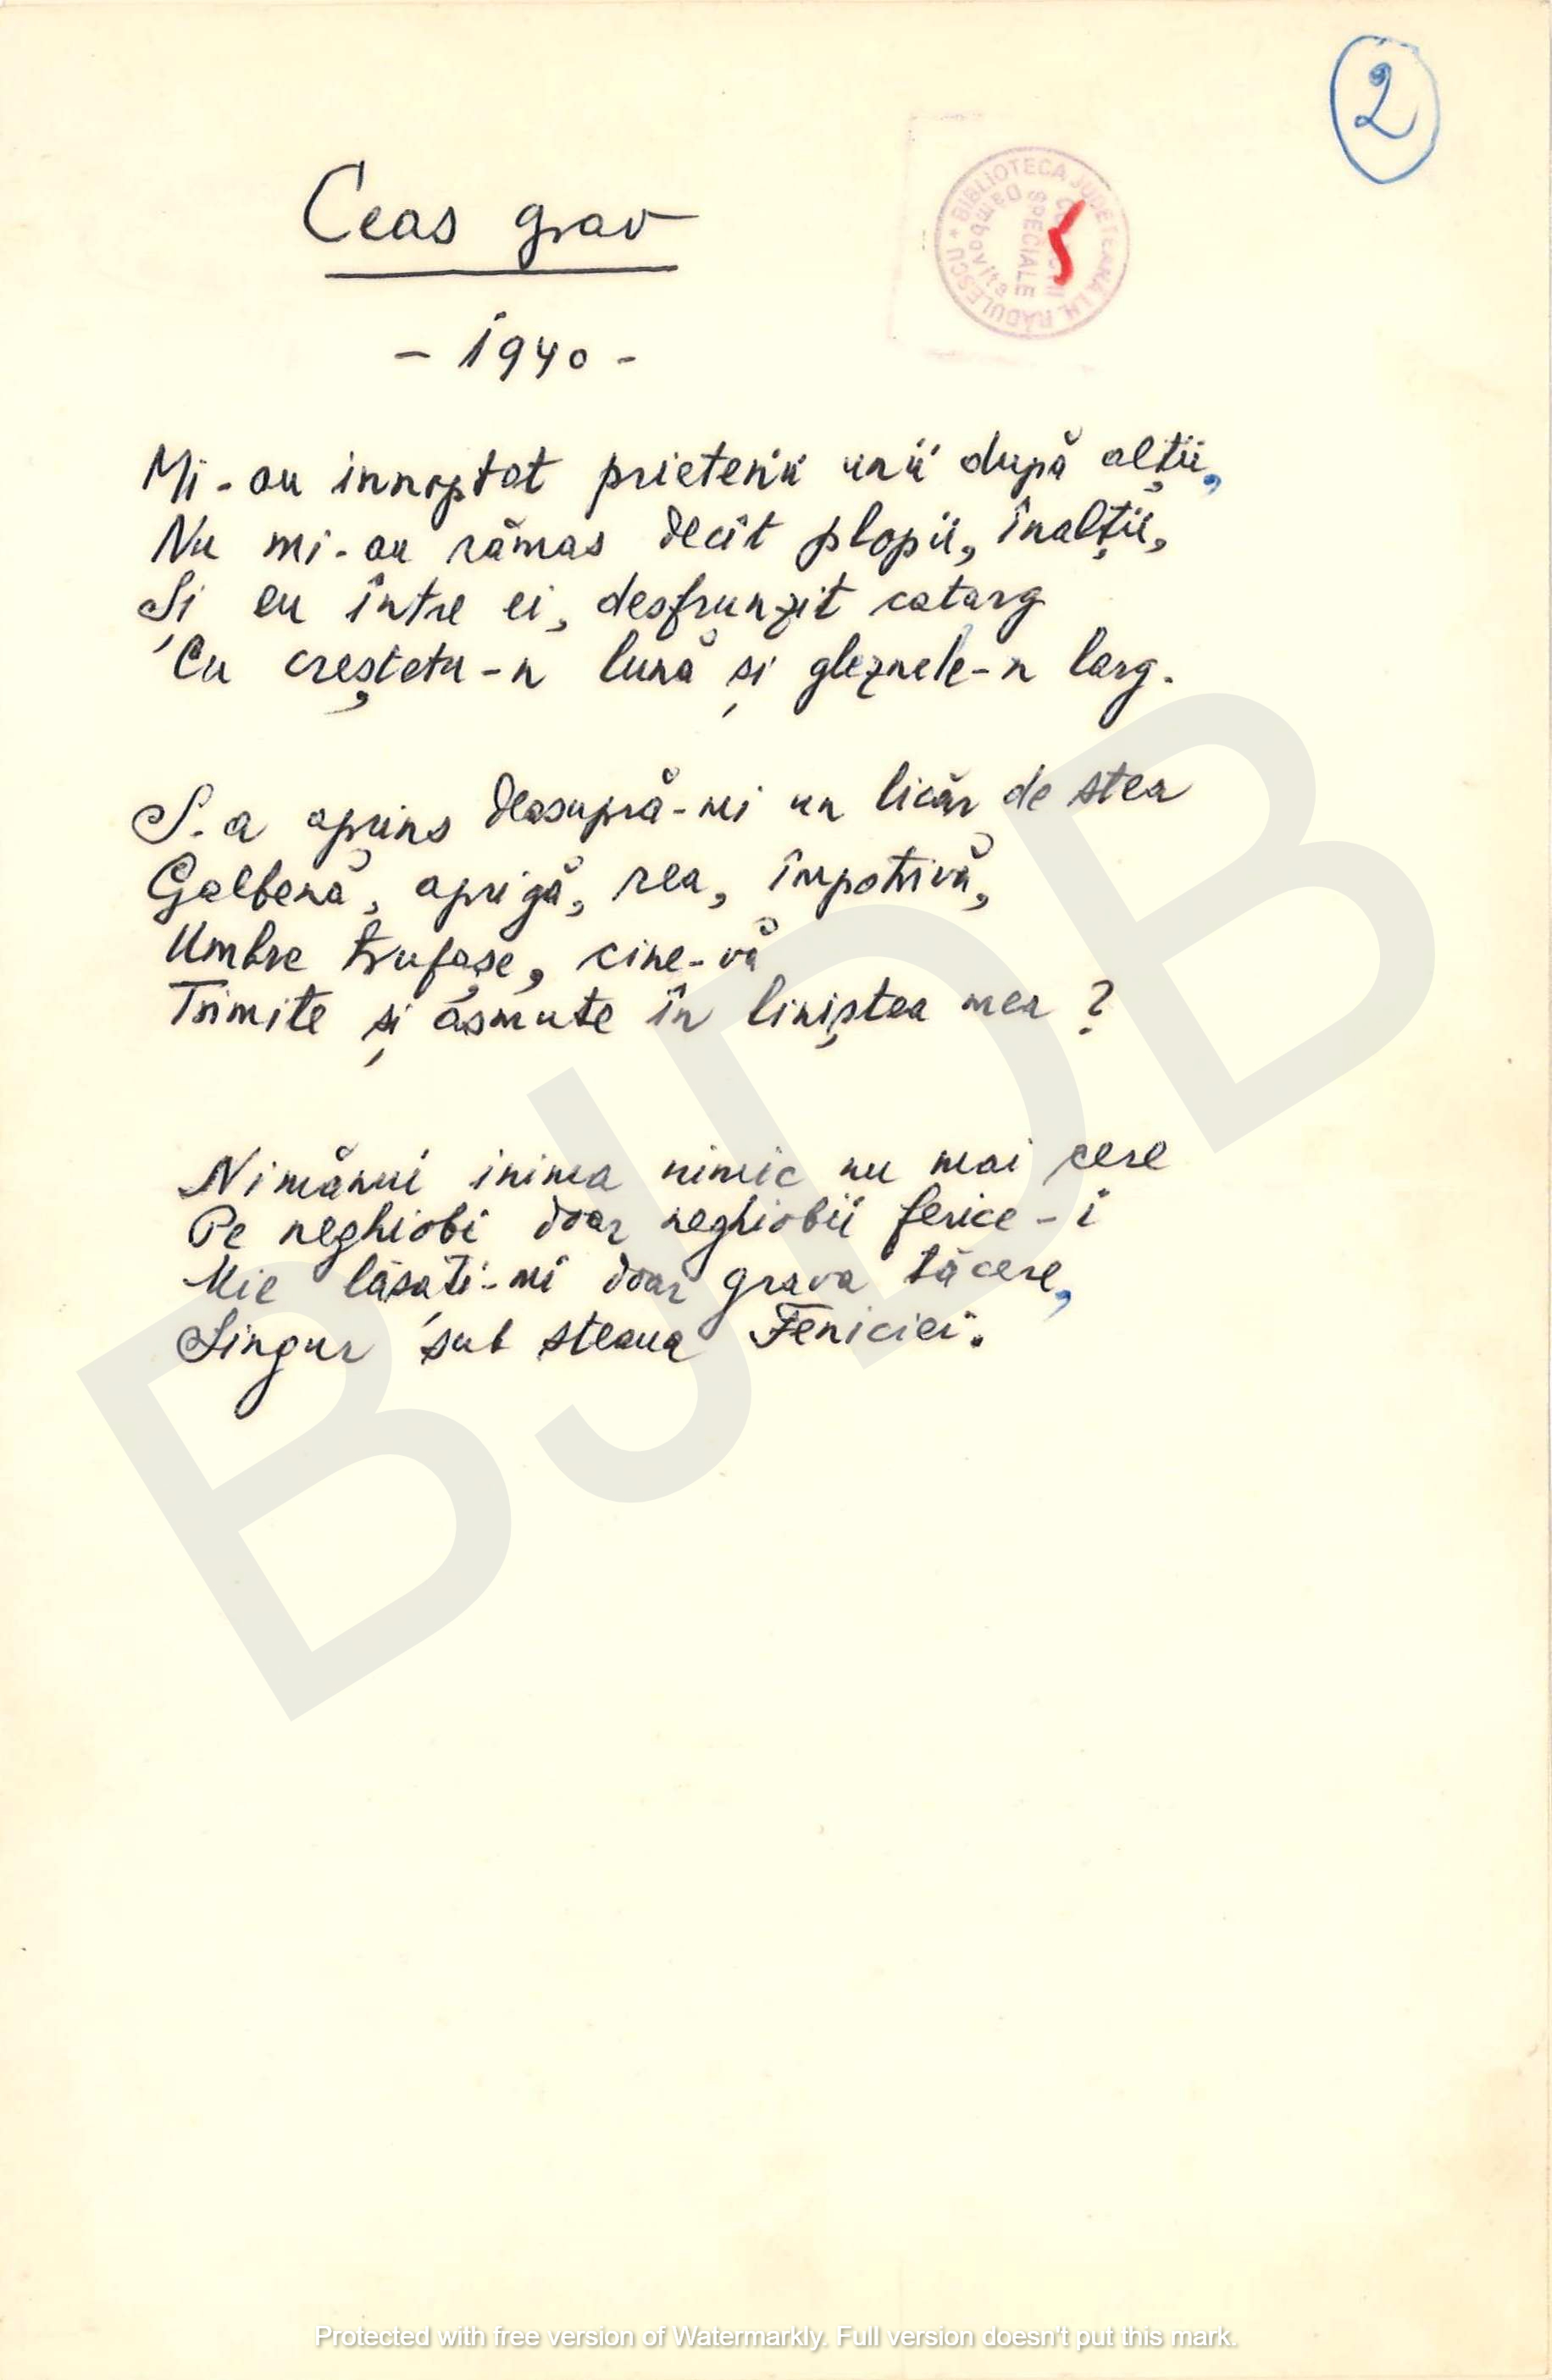 2
Ceas grav
- 1940 -
BIBLIOTECA JUDEȚEANĂ I.H. RĂDULESCU
Dâmbovița
SPECIALE
Mi-au innoptat prietenii unii după alții,
Nu mi-au rămas decît plopii, înalții,
Și eu între ei, desfrunzit catarg
Cu creștetu-n lună și gleznele-n larg.
S-a aprins deasupră-mi un licăr de stea
Galbenă, aprigă, rea, împotrivă,
Umbre trufașe, cine-vă
Trimite și asmute în liniștea mea ?
Nimănui inima nimic nu mai cere
Pe neghiobi doar neghiobii ferice-i
Mie lăsați-mi doar grava tăcere,
Singur sub steaua Feniciei.
BJDB
Protected with free version of Watermarkly. Full version doesn't put this mark.